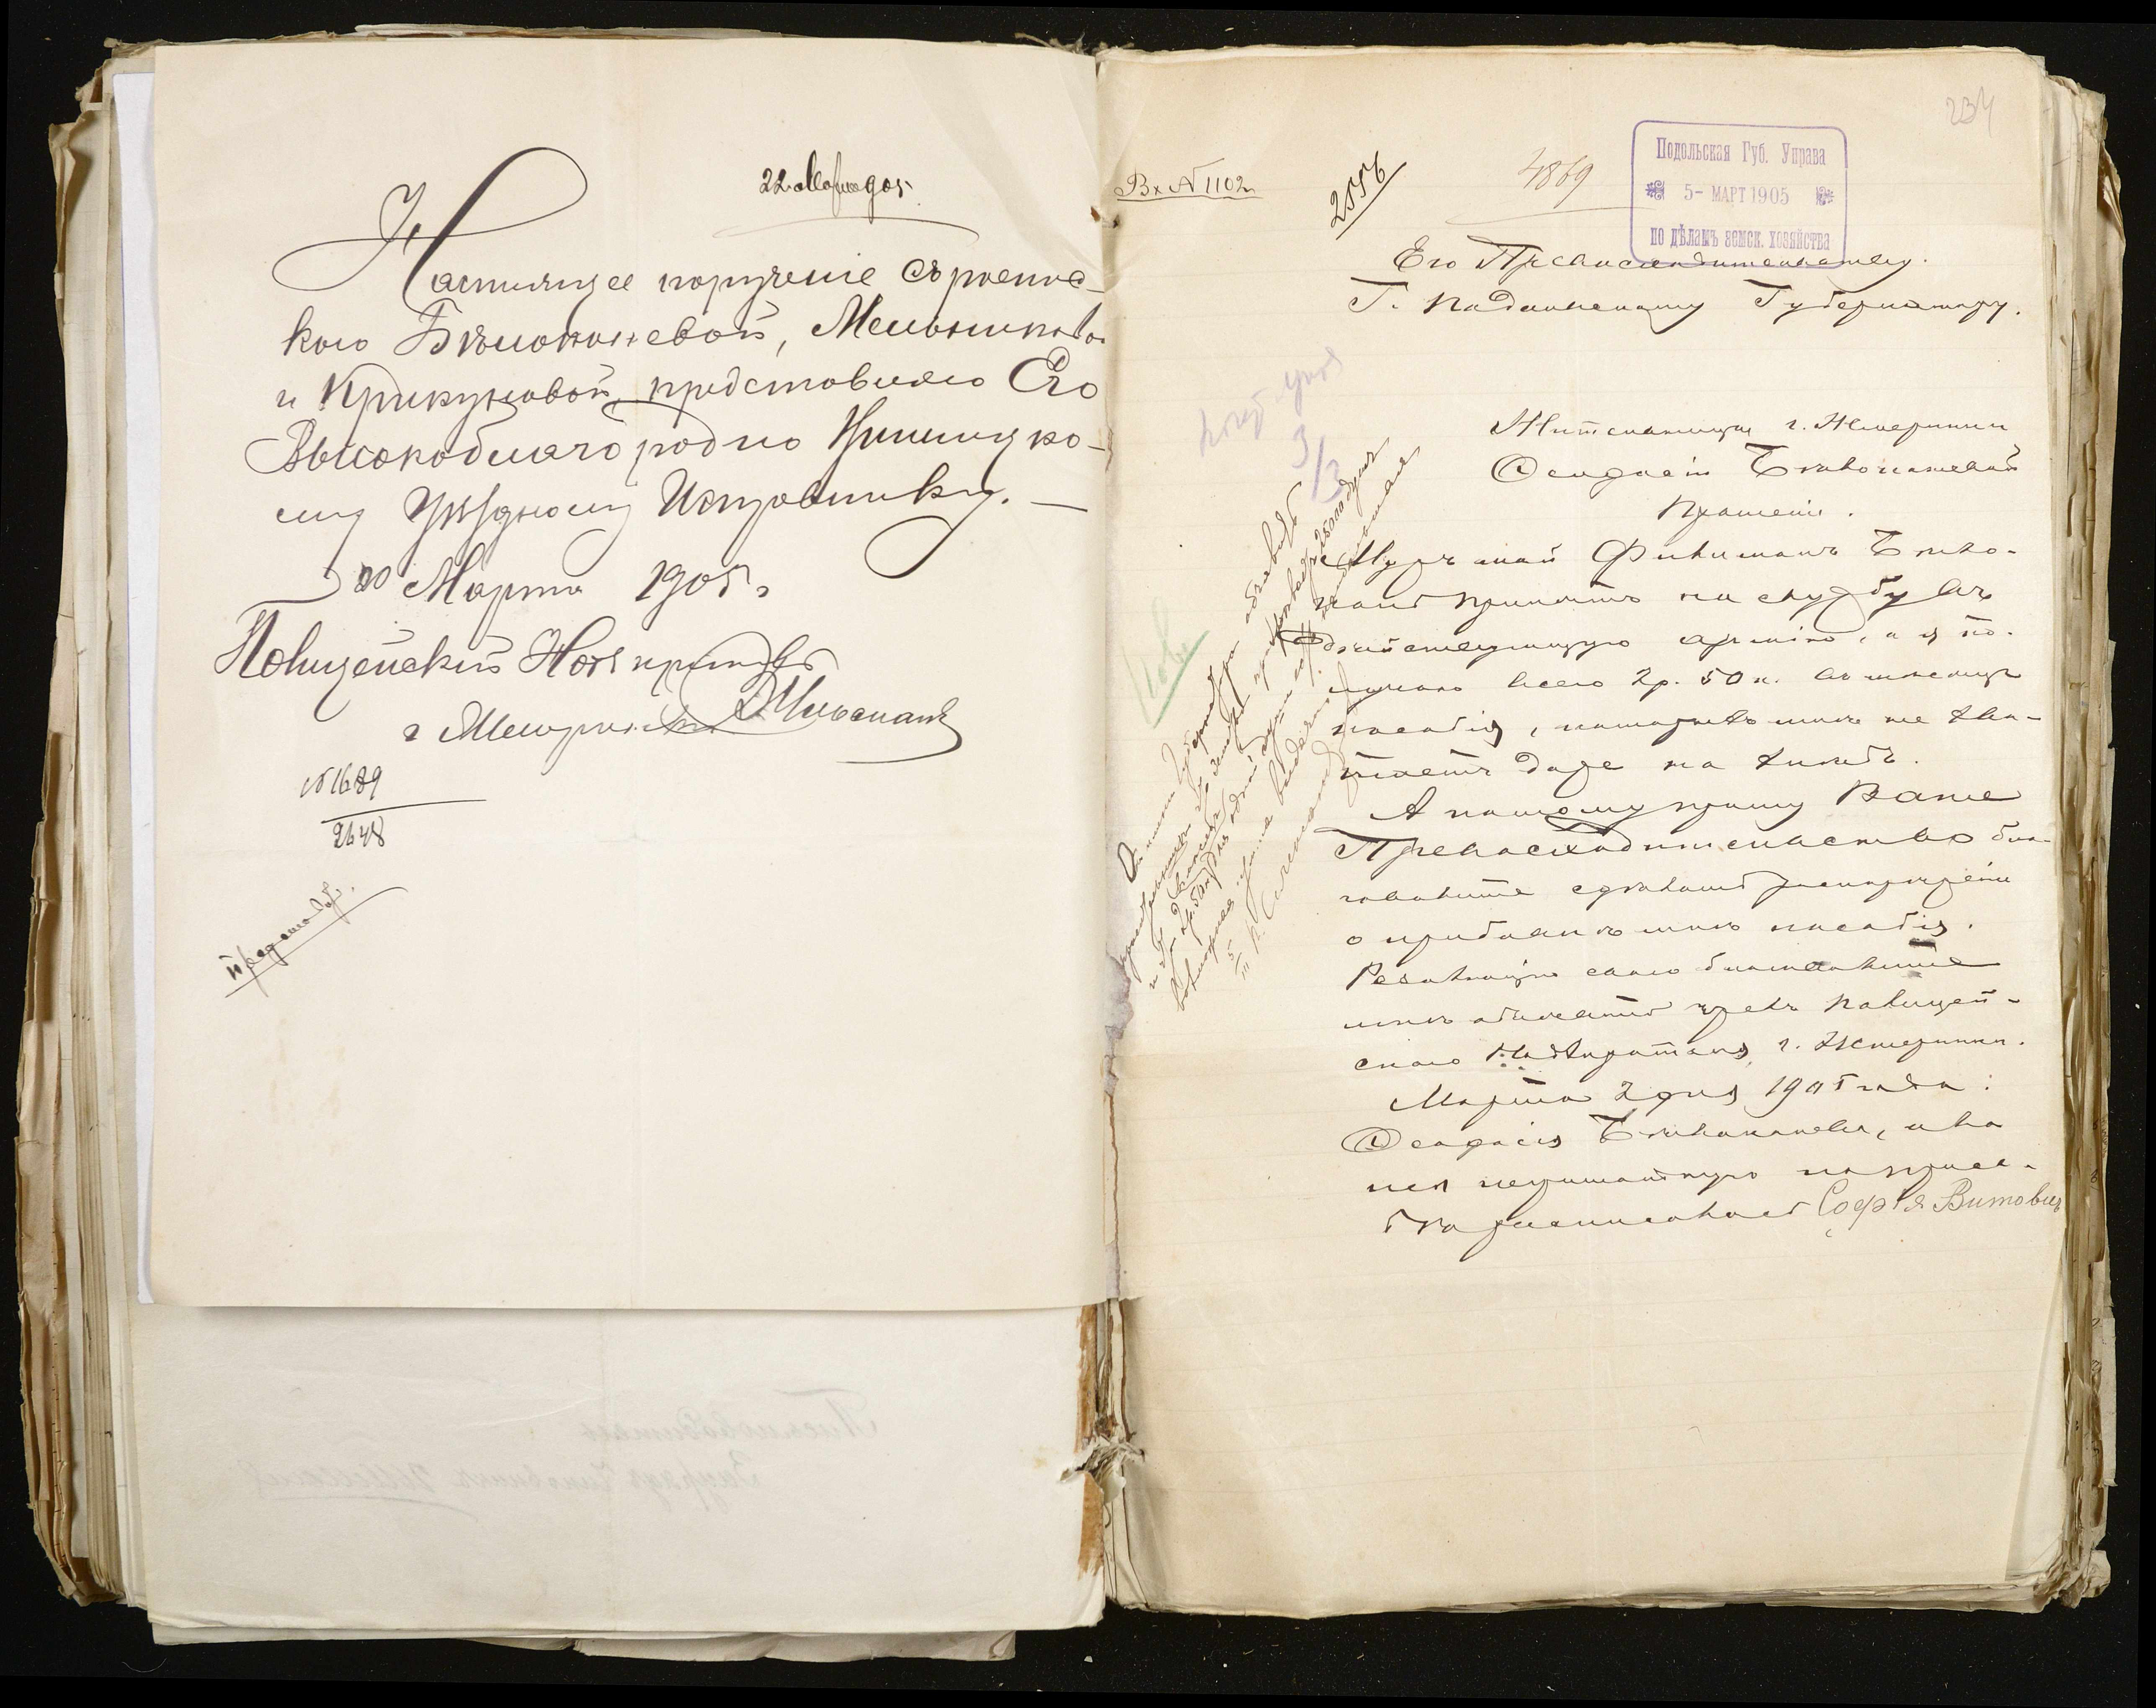 22 Марта 905
Настоящее поручение съ роспис-
кою Бѣлоконевой, Мельниковой
и Крикуновой, представляю Его
Высокоблагородію Винницко-
му Уѣздному Исправнику. —
20 Марта 1905 г.
Полицейскій Надзиратель
г. Жмеринки
№ 1689
2648
Вх № 1102
2556
4869
234
Подольская Губ. Управа
5 - МАРТ 1905
по дѣламъ земск. хозяйства
Его Превосходительству.
Г. Подольскому Губернатору.
3/3
Жительницы г. Жмеринки
Феодосіи Бѣлоконевой
Прошеніе.
Мужъ мой Филимонъ Бѣло-
конь принятъ на службу въ
дѣйствующую армію, а я по-
лучаю всего 2 р. 50 к. въ мѣсяцъ
пособія, которыхъ мнѣ не хва-
таетъ даже на хлѣбъ.
А потому прошу Ваше
Превосходительство бла-
говолите сдѣлать распоряженіе
о прибавкѣ мнѣ пособія.
Резолюцію свою благоволите
мнѣ объявить чрезъ Полицей-
скаго Надзирателя г. Жмеринки.
Марта 2 дня 1905 года.
Феодосія Бѣлоконева, а за
нея неграмотную по просьбѣ
росписалась Софія Витовичъ